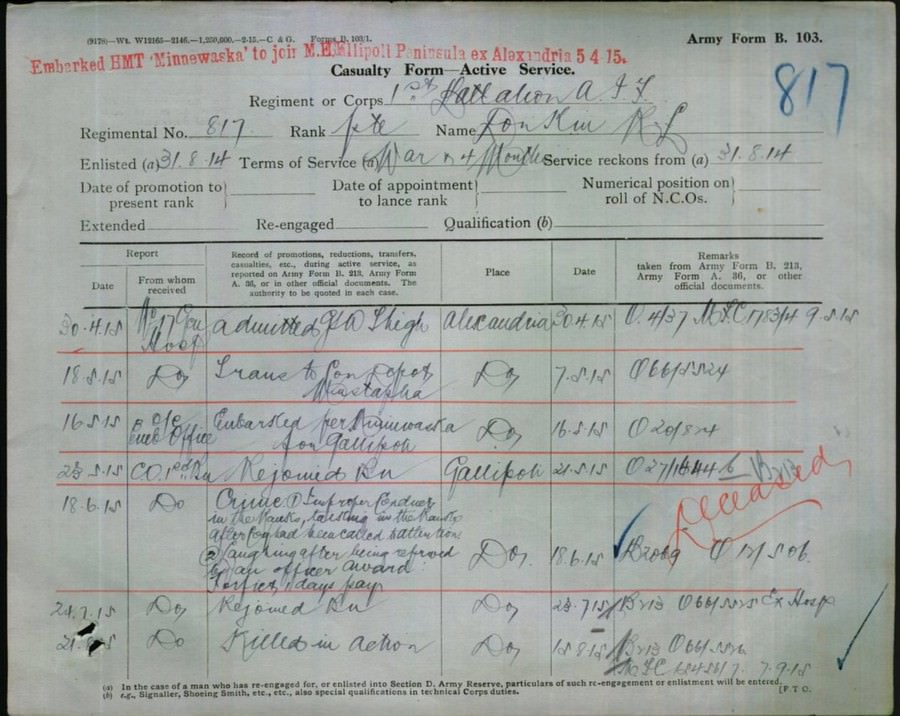 (9178)—Wt. W12165—2146.—1,250,000.—2-15.—C & G. Forms B. 103/1.
Army Form B. 103.
Embarked HMT 'Minnewaska' to join M.E. Gallipoli Peninsula ex Alexandria 5 4 15.
Casualty Form—Active Service.
817
Regiment or Corps 1st Battalion A.I.F.
Regimental No. 817. Rank Pte Name Donkin R L
Enlisted (a) 31.8.14 Terms of Service (a) War & 4 Months Service reckons from (a) 31.8.14
Date of promotion to present rank Date of appointment to lance rank Numerical position on roll of N.C.Os.
Extended Re-engaged Qualification (b)
Report
Date
From whom received
Record of promotions, reductions, transfers, casualties, etc., during active service, as reported on Army Form B. 213, Army Form A. 36, or in other official documents. The authority to be quoted in each case.
Place
Date
Remarks taken from Army Form B. 213, Army Form A. 36, or other official documents.
30.4.15 No 17 Gen Hosp admitted GSW Thigh Alexandria 30.4.15 O.4/37 9.5.15
18.5.15 Do Trans to Con Depot Mustapha Do 7.5.15 O66/5524
16 5 15 Embarked per Minnewaska for Gallipoli Do 16.5.15
23.5.15 C.O. 1st Bn Rejoined Bn Gallipoli 21.5.15 B213
Deceased
18.6.15 Do Crime (1) Improper Conduct
in the Ranks, talking in the Ranks
after Coy had been called to attention
(2) laughing after being reproved
by an officer award
Forfeit 1 days pay
Do. 18.6.15 B2069 O 12/506
24.7.15 Do Rejoined Bn Do 23.7.15 B213 O66/5525 Ex Hosp
Do Killed in action Do 15.8.15 B213 O66/5526
7.9.15
(a) In the case of a man who has re-engaged for, or enlisted into Section D. Army Reserve, particulars of such re-engagement or enlistment will be entered.
(b) e.g., Signaller, Shoeing Smith, etc., etc., also special qualifications in technical Corps duties.
[P.T.O.